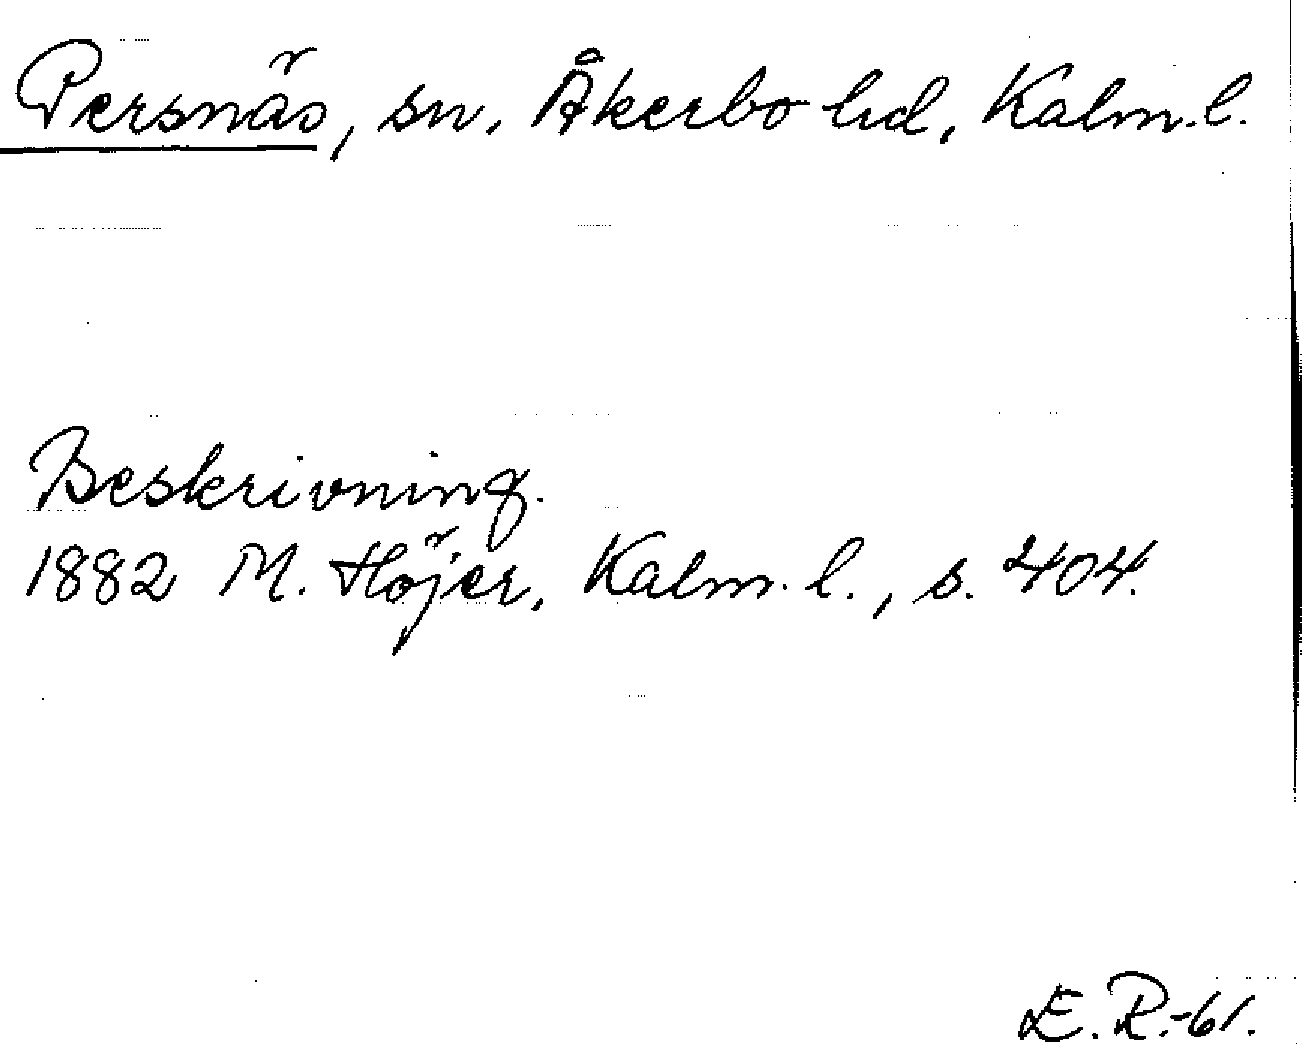 Persnäs, sn, Åkerbo hd, Kalm.l.
Beskrivning.
1882 M. Höjer, Kalm. l., s. 404.
E.R.-61.